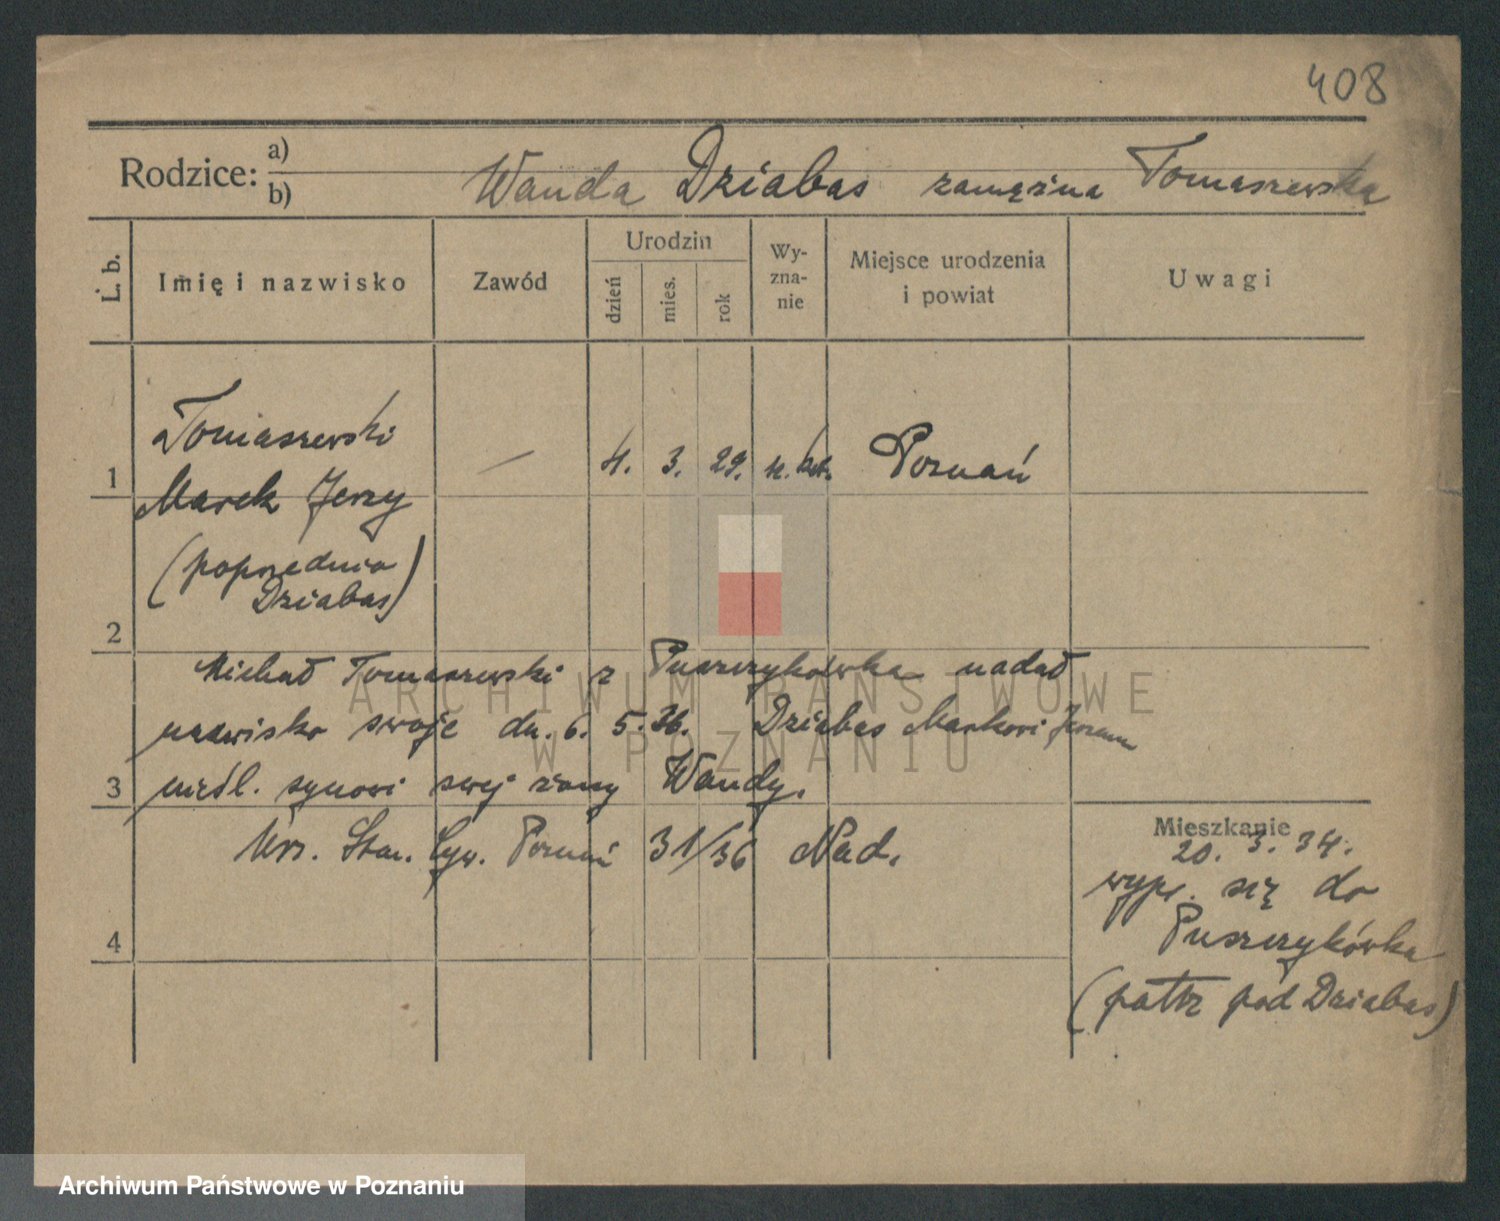 408
Rodzice: a)
b) Wanda Dziabas zamężna Tomaszewska
L. b.
Imię i nazwisko
Zawód
Urodzin
dzień
mies.
rok
Wy-
zna-
nie
Miejsce urodzenia
i powiat
Uwagi
Tomaszewski
1 Marek Jerzy — 4. 3. 29. rz. kat. Poznań
(poprzednio
Dziabas)
2
Michał Tomaszewski z Puszczykówka nadał
nazwisko swoje dn. 6. 5. 36. Dziabas Markowi Jerzemu
3 nieśl. synowi swej żony Wandy.
Urz. Stan. Cyw. Poznań 31/36 Nad.
Mieszkanie
20. 3. 34.
wypr. się do
Puszczykówka
(patrz pod Dziabas)
4
ARCHIWUM PAŃSTWOWE
W POZNANIU
Archiwum Państwowe w Poznaniu